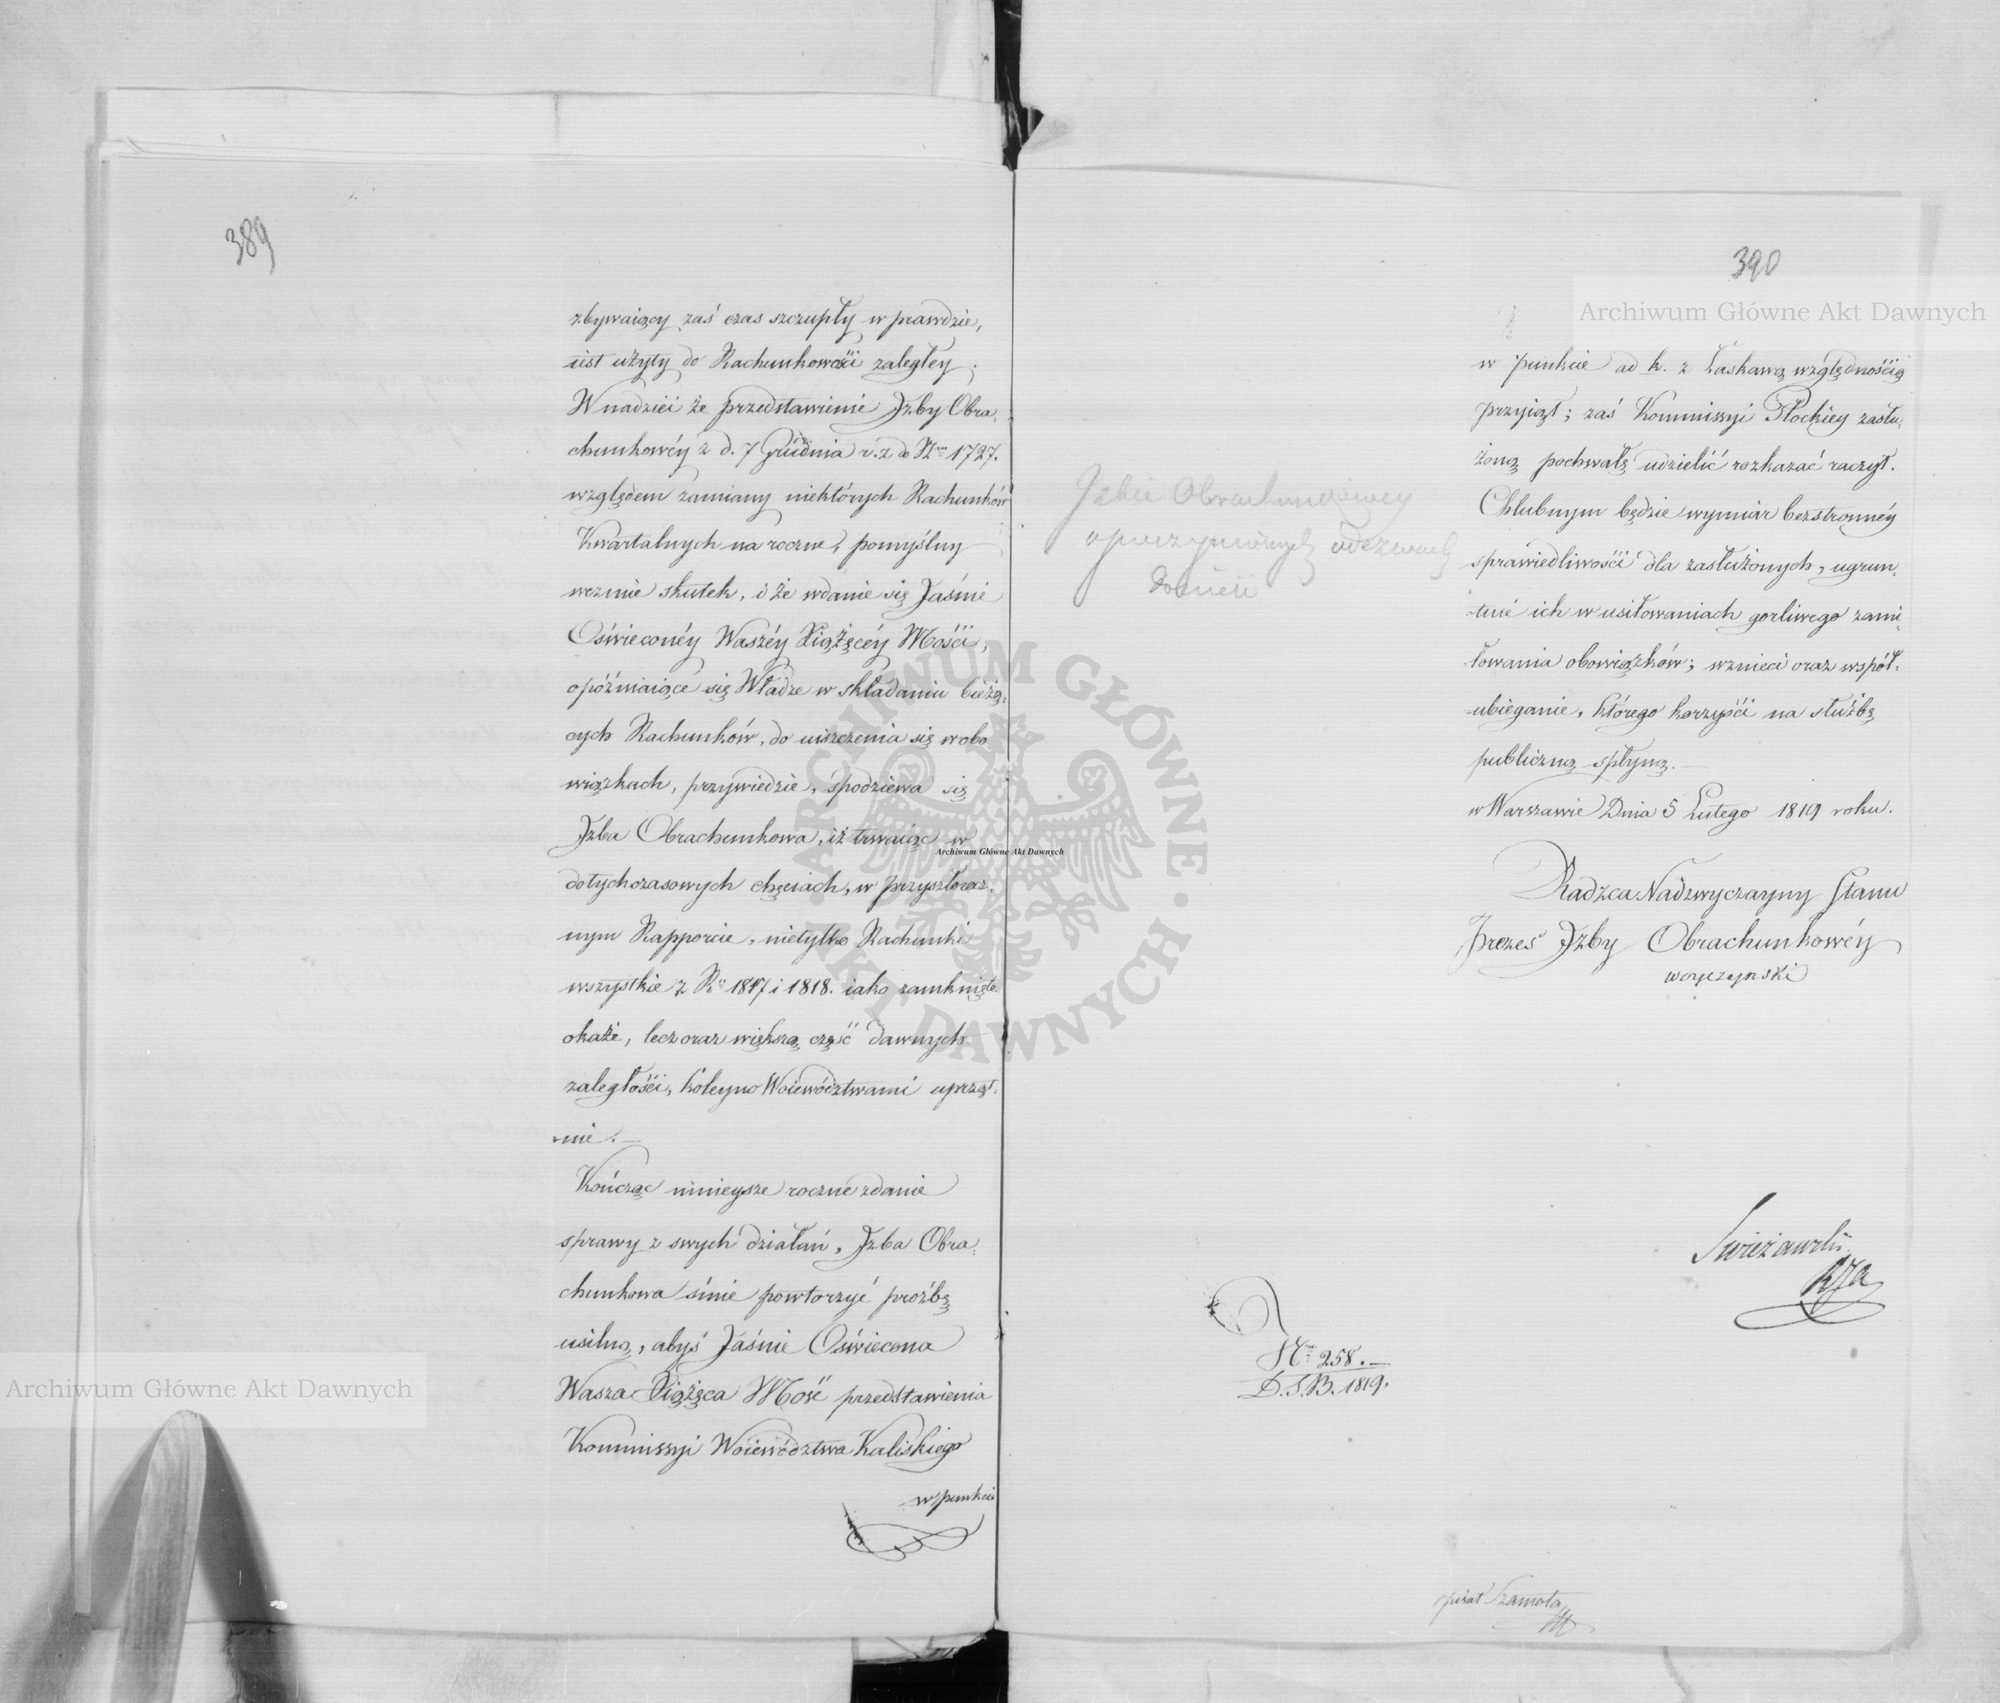 389
zbywaiący zaś czas szczupły w prawdzie,
iest użyty do Rachunkowości zaległey.
W nadziei że przedstawienie Jzby Obra-
chunkowéy z d. 7 Grudnia r. z do Nro 1727.
względem zamiany niektórych Rachunków
Kwartalnych na roczne, pomyślny
weźmie skutek, i że wdanie się Jaśnie
Oświeconéy Waszéy Xiążęcéy Mości,
opóźniaiące się Władze w składaniu bieżą-
cych Rachunków, do uiszczenia się w obo
wiązkach, przywiedzie, spodziewa się
Jzba Obrachunkowa, iż trwaiąc w
dotychczasowych chęciach, w przyszłoroz.
nym Rapporcie, nietylko Rachunki
wszystkie z R. 1817 i 1818. iako zamknięte
okaże, lecz oraz większą część dawnych
zaległości, koleyno Woiewództwami uprząt.
nie.—
Kończąc ninieysze roczné zdanie
sprawy z swych działań, Jzba Obra-
chunkowa śmie powtorzyć prożbę
usilną, abyś Jaśnie Oświecona
Wasza Xiążęca Mość przedstawienia
Kommissyi Woiewództwa Kaliskiego
w punkcie
390
w punkcie ad k. z Łaskawą względnością
przyiął; zaś Kommissyi Płockiey zasłu-
żoną pochwałę udzielić rozkazać raczył.
Chlubnym będzie wymiar bezstronnéy
sprawiedliwości dla zasłużonych, ugrun.
tuié ich w usiłowaniach gorliwego zami-
łowania obowiązków; wznieci oraz współ-
ubieganie, którego korzyści na służbę
publiczną spłyną.—
w Warszawie Dnia 5 Lutego 1819 roku.
Radzca Nadzwyczayny Stanu
Prezes Jzby Obrachunkowéy
Woyczynski
Jzbie Obrachunkowey
o poczynionych odezwach
donieść
Nro 258.—
D.J.B. 1819.
Swieżawski
pisał Szamota
Archiwum Główne Akt Dawnych
Archiwum Główne Akt Dawnych
Archiwum Główne Akt Dawnych
ARCHIWUM GŁÓWNE AKT DAWNYCH